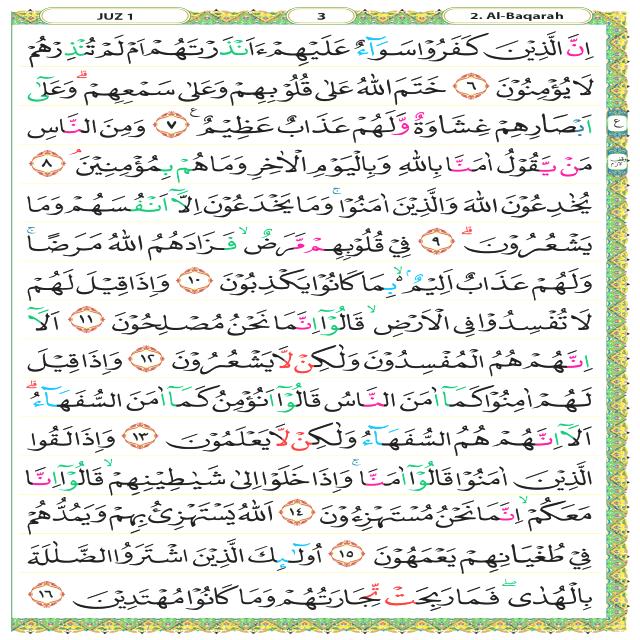 JUZ 1 3 2. Al-Baqarah
اِنَّ الَّذِيْنَ كَفَرُوْا سَوَاۤءٌ عَلَيْهِمْ ءَاَنْذَرْتَهُمْ اَمْ لَمْ تُنْذِرْهُمْ
لَا يُؤْمِنُوْنَ ٦ خَتَمَ اللّٰهُ عَلٰى قُلُوْبِهِمْ وَعَلٰى سَمْعِهِمْ ۗ وَعَلٰٓى
اَبْصَارِهِمْ غِشَاوَةٌ وَّلَهُمْ عَذَابٌ عَظِيْمٌ ٧ وَمِنَ النَّاسِ
مَنْ يَّقُوْلُ اٰمَنَّا بِاللّٰهِ وَبِالْيَوْمِ الْاٰخِرِ وَمَا هُمْ بِمُؤْمِنِيْنَ ۘ ٨
يُخٰدِعُوْنَ اللّٰهَ وَالَّذِيْنَ اٰمَنُوْا ۚ وَمَا يَخْدَعُوْنَ اِلَّآ اَنْفُسَهُمْ وَمَا
يَشْعُرُوْنَ ۗ ٩ فِيْ قُلُوْبِهِمْ مَّرَضٌ ۙ فَزَادَهُمُ اللّٰهُ مَرَضًا ۚ
وَلَهُمْ عَذَابٌ اَلِيْمٌ ۢ ەۙ بِمَا كَانُوْا يَكْذِبُوْنَ ١٠ وَاِذَا قِيْلَ لَهُمْ
لَا تُفْسِدُوْا فِى الْاَرْضِ ۙ قَالُوْٓا اِنَّمَا نَحْنُ مُصْلِحُوْنَ ١١ اَلَآ
اِنَّهُمْ هُمُ الْمُفْسِدُوْنَ وَلٰكِنْ لَّا يَشْعُرُوْنَ ١٢ وَاِذَا قِيْلَ
لَهُمْ اٰمِنُوْا كَمَآ اٰمَنَ النَّاسُ قَالُوْٓا اَنُؤْمِنُ كَمَآ اٰمَنَ السُّفَهَاۤءُ ۗ
اَلَآ اِنَّهُمْ هُمُ السُّفَهَاۤءُ وَلٰكِنْ لَّا يَعْلَمُوْنَ ١٣ وَاِذَا لَقُوا
الَّذِيْنَ اٰمَنُوْا قَالُوْٓا اٰمَنَّا ۚ وَاِذَا خَلَوْا اِلٰى شَيٰطِيْنِهِمْ ۙ قَالُوْٓا اِنَّا
مَعَكُمْ ۙ اِنَّمَا نَحْنُ مُسْتَهْزِءُوْنَ ١٤ اَللّٰهُ يَسْتَهْزِئُ بِهِمْ وَيَمُدُّهُمْ
فِيْ طُغْيَانِهِمْ يَعْمَهُوْنَ ١٥ اُولٰۤىِٕكَ الَّذِيْنَ اشْتَرَوُا الضَّلٰلَةَ
بِالْهُدٰى ۖ فَمَا رَبِحَتْ تِّجَارَتُهُمْ وَمَا كَانُوْا مُهْتَدِيْنَ ١٦